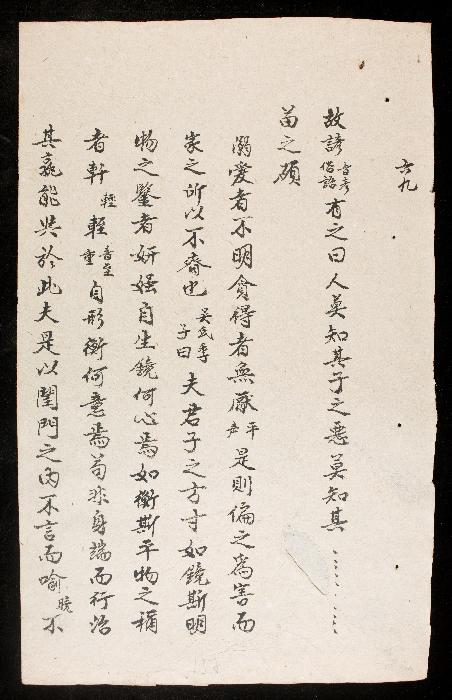 六九
故諺音彦俗語有之曰人莫知其子之惡莫知其
苗之碩
溺愛者不明貪得者無厭平声是則偏之為害而
家之所以不齊也吴氏季子曰夫君子之方寸如鏡斯明
物之鑒者妍媸自生鏡何心焉如衡斯平物之稱
者軒輕輊音至重自形衡何意焉苟非身端而行治
其孰能與於此夫是以閨門之內不言而喻暁不